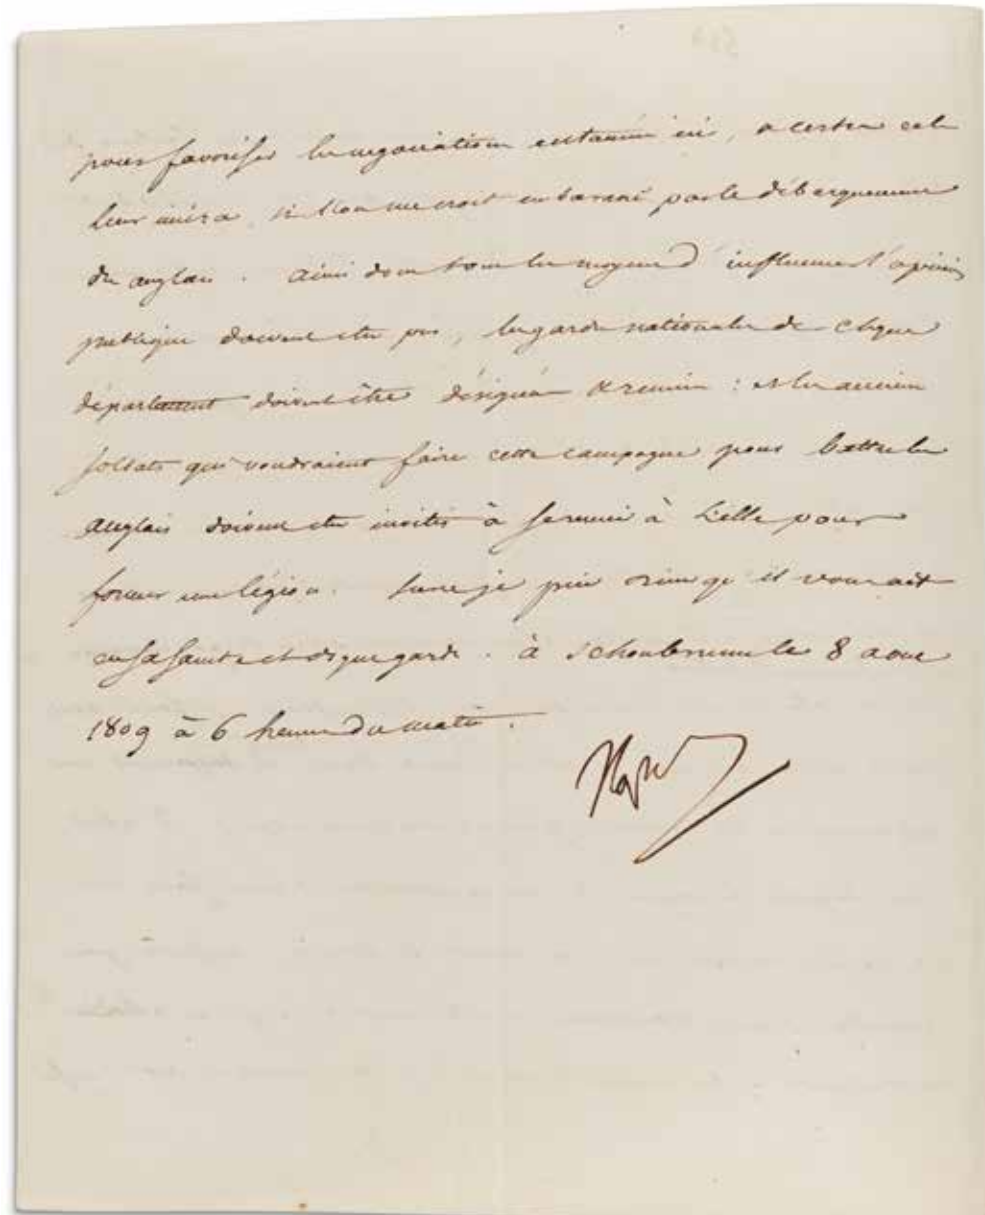 pour favoriser les negociations entamées ici, a certes cela
leur nuira si l'on me croit embarassé par le débarquement
des anglais. ainsi donc tous les moyens d'influencer l'opinion
publique doivent être pris, les gardes nationales de chaque
département doivent être désignées & réunies : et les anciens
soldats qui voudraient faire cette campagne pour battre les
anglais doivent être invités à se reunir à Lille pour
former une légion. Sur ce je prie Dieu qu'il vous ait
en sa sainte et digne garde. à Schonbrunn le 8 aout
1809 à 6 heures du matin.
Nap